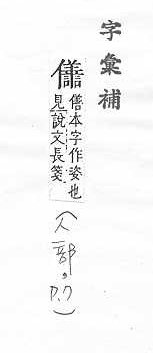 字彙補
僐本字作姿也
見說文長箋
(人部，P.7)